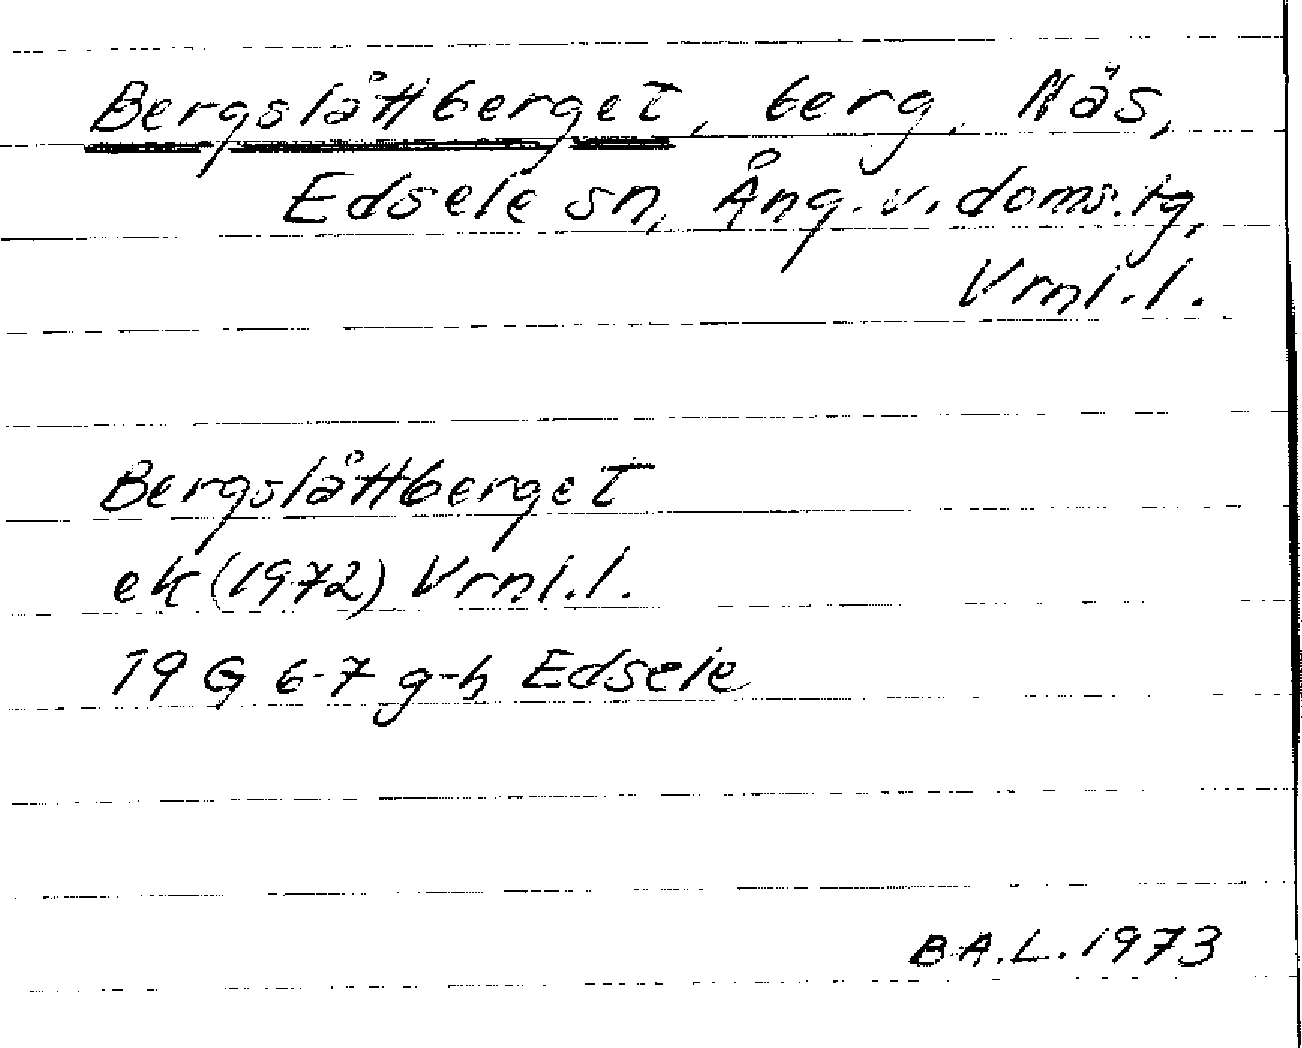 Bergslåttberget, berg, Näs,
Edsele sn, Ång. v. doms. tg,
Vrnl. l.
Bergslåttberget
ek (1972) Vrnl. l.
19 G 6-7 g-h Edsele
B.A.L. 1973